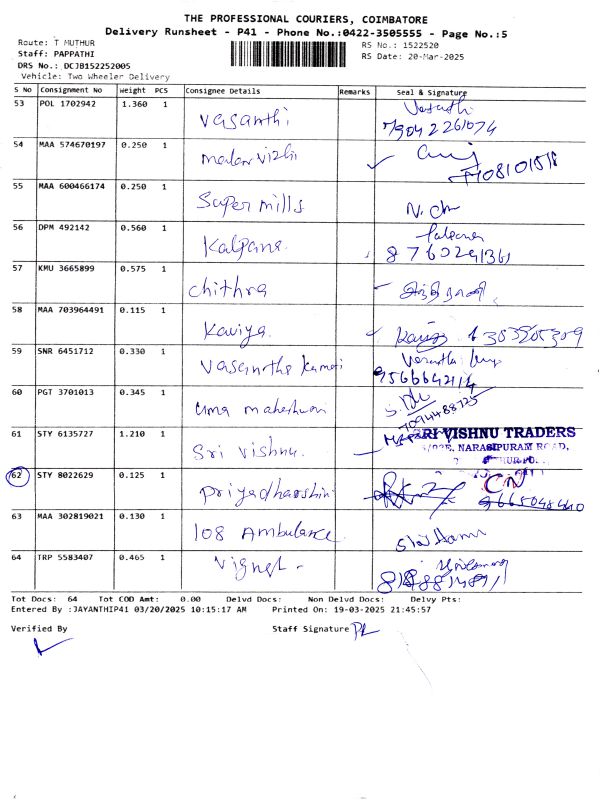 THE PROFESSIONAL COURIERS, COIMBATORE
Delivery Runsheet - P41 - Phone No.:0422-3505555 - Page No.:5
Route: T MUTHUR
RS No.: 1522520
Staff: PAPPATHI
RS Date: 20-Mar-2025
DRS No.: DCJB152252005
Vehicle: Two Wheeler Delivery
S No Consignment No Weight PCS Consignee Details Remarks Seal & Signature
53 POL 1702942 1.360 1 Vasanthi Vasanthi
79042261074
54 MAA 574670197 0.250 1 malar vizhi
55 MAA 600466174 0.250 1 Super mills
56 DPM 492142 0.560 1 Kalpana
8760291361
57 KMU 3665899 0.575 1 Chithra
58 MAA 703964491 0.115 1 Kaviya
59 SNR 6451712 0.330 1 Vasantha kumari
9566642114
60 PGT 3701013 0.345 1 uma maheshwari
7094488725
61 STY 6135727 1.210 1 Sri Vishnu SRI VISHNU TRADERS
NARASIPURAM ROAD,
62 STY 8022629 0.125 1 Priyadharshini
9665048440
63 MAA 302819021 0.130 1 108 Ambulance
64 TRP 5583407 0.465 1 Vignesh
Tot Docs: 64 Tot COD Amt: 0.00 Delvd Docs: Non Delvd Docs: Delvy Pts:
Entered By :JAYANTHIP41 03/20/2025 10:15:17 AM Printed On: 19-03-2025 21:45:57
Verified By Staff Signature